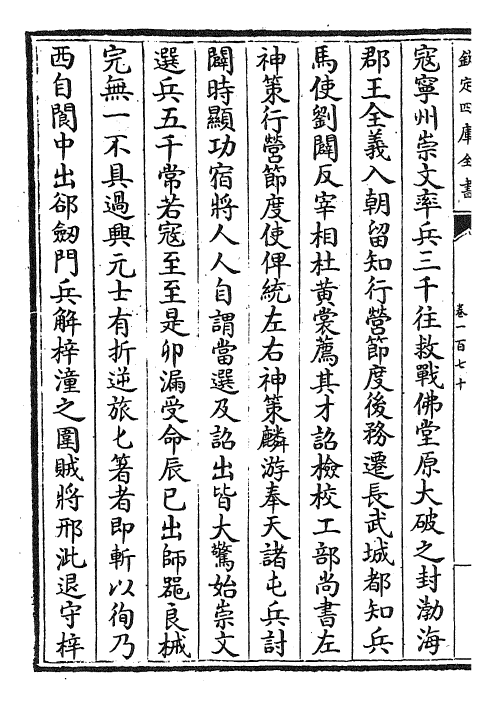 欽定四庫全書
卷一百七十
寇寧州崇文率兵三千往救戰佛堂原大破之封渤海
郡王全義入朝留知行營節度後務遷長武城都知兵
馬使劉闢反宰相杜黃裳薦其才詔檢校工部尚書左
神策行營節度使俾統左右神策麟游奉天諸屯兵討
闢時顯功宿將人人自謂當選及詔出皆大驚始崇文
選兵五千常若寇至至是卯漏受命辰已出師器良械
完無一不具過興元士有折逆旅匕箸者即斬以徇乃
西自閬中出郤劒門兵解梓潼之圍賊將邢泚退守梓